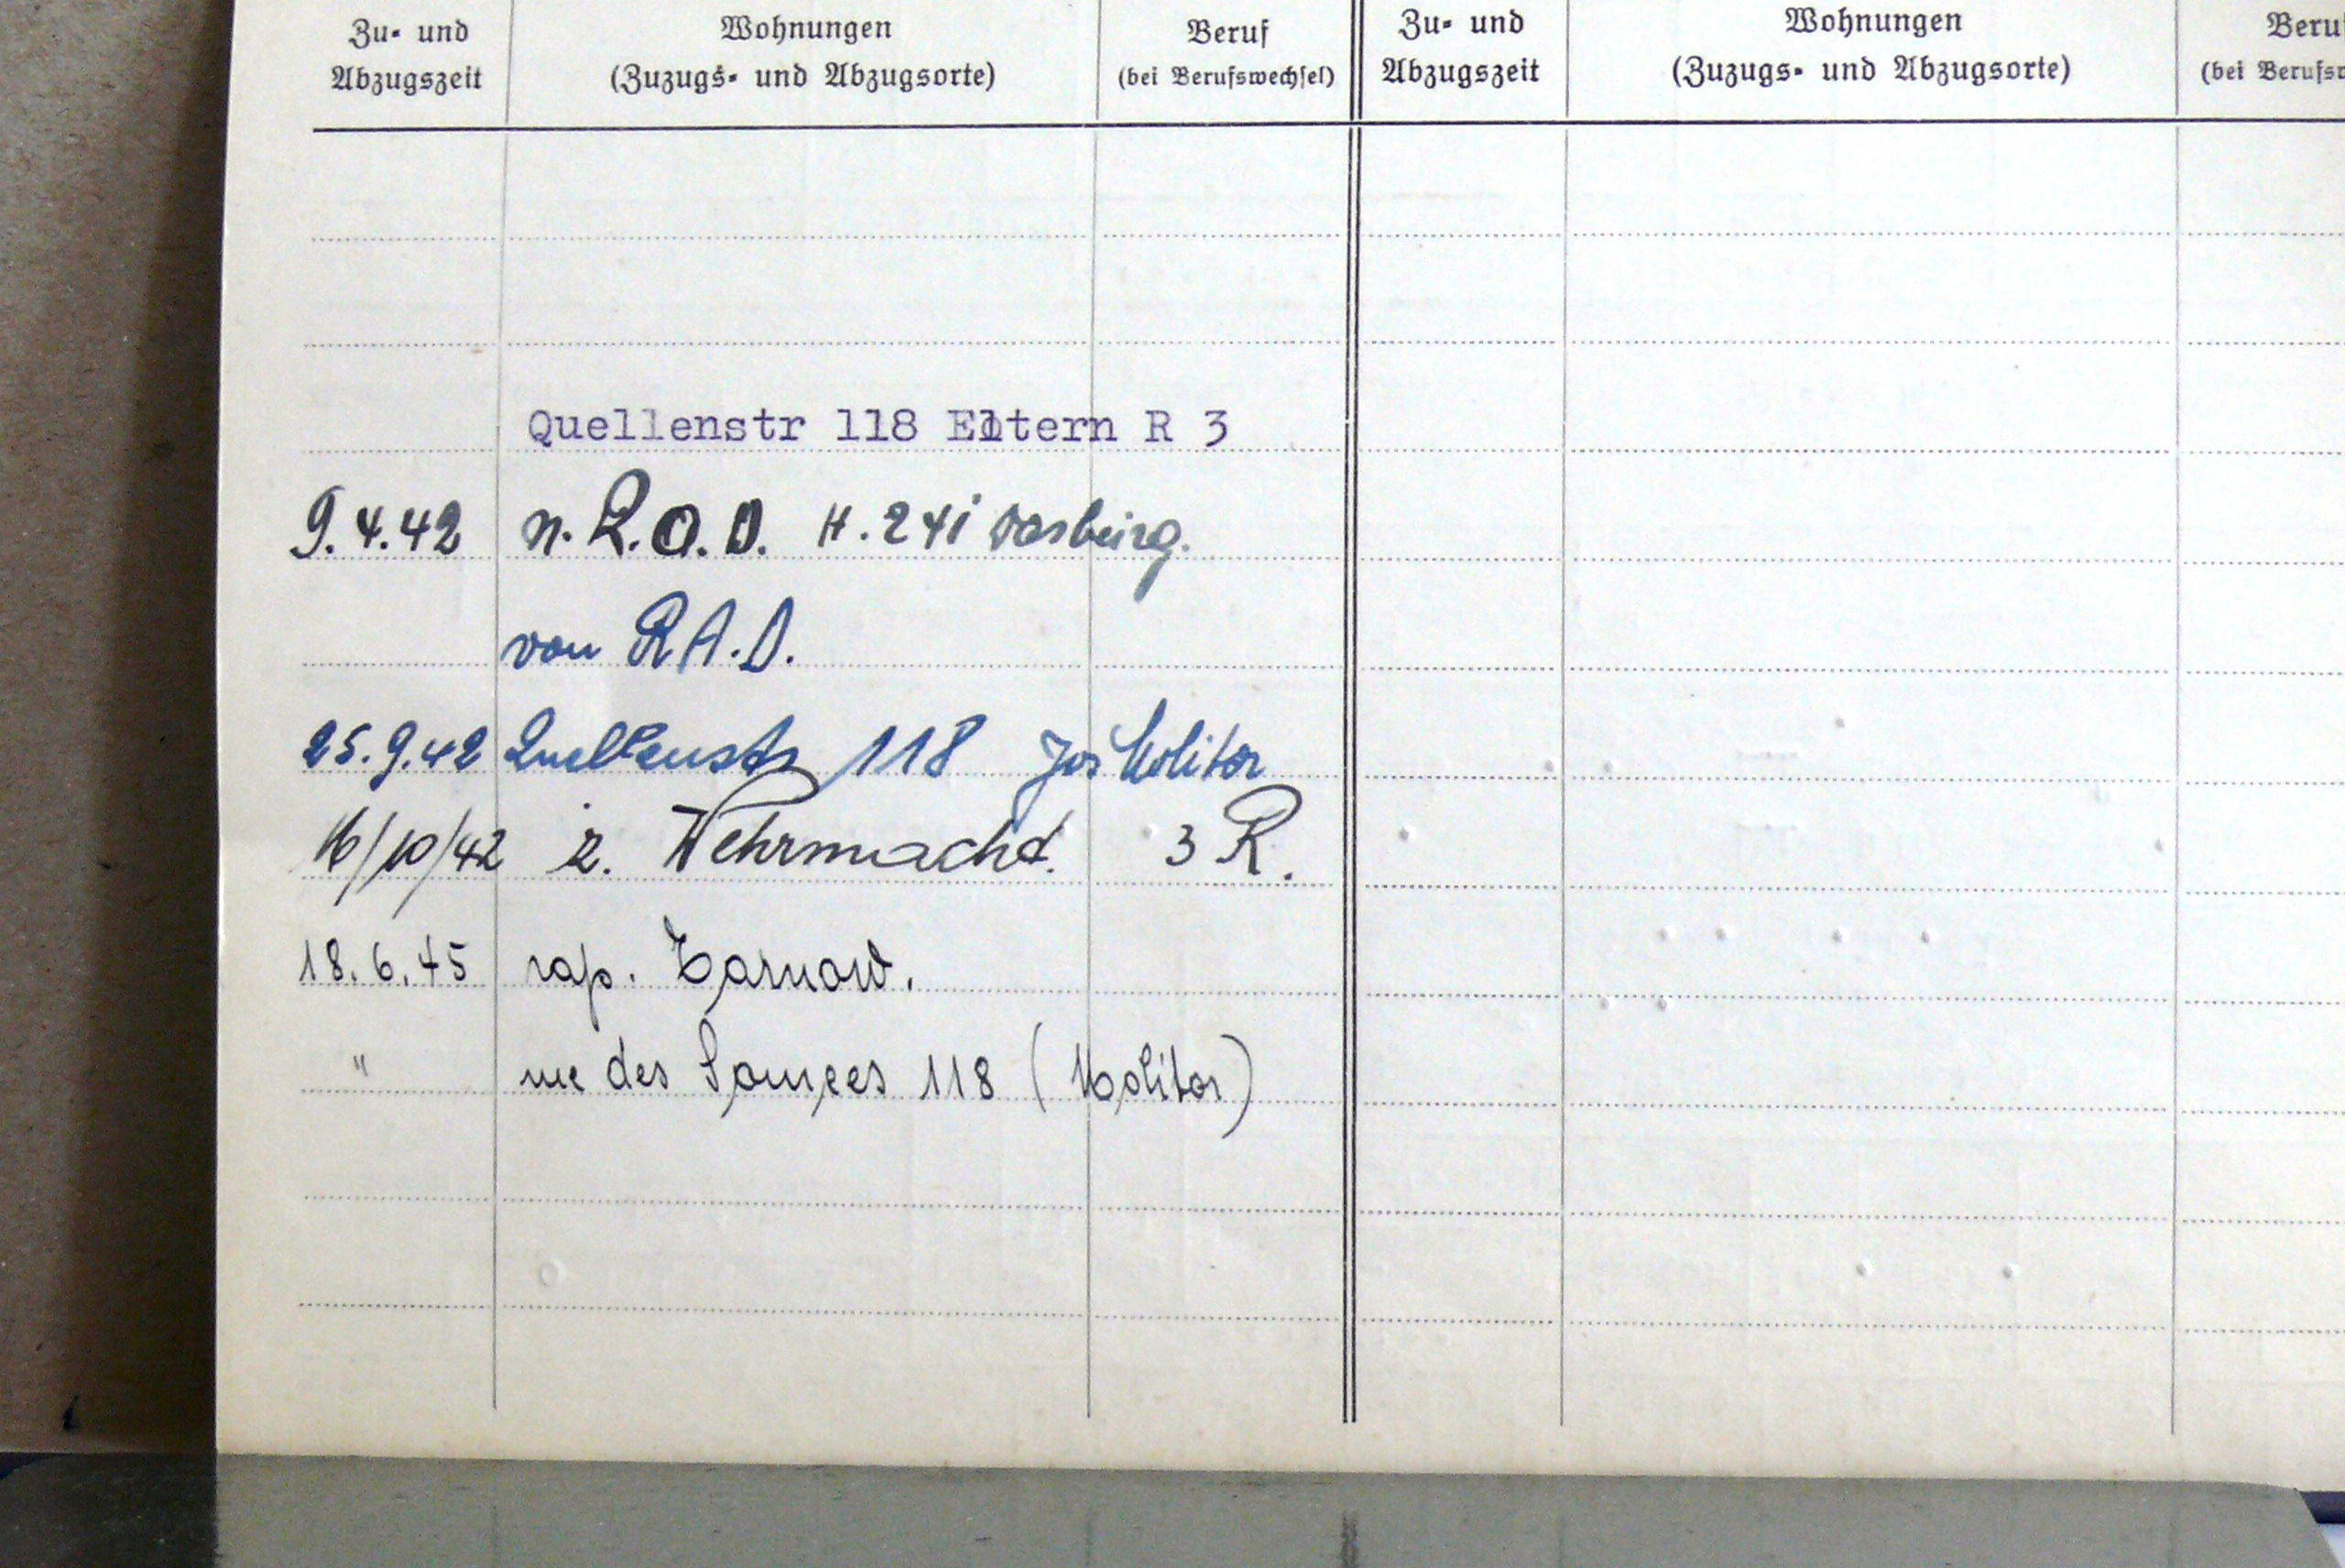 Zu- und Abzugszeit
Wohnungen (Zuzugs- und Abzugsorte)
Beruf (bei Berufswechsel)
Zu- und Abzugszeit
Wohnungen (Zuzugs- und Abzugsorte)
Quellenstr 118 Eltern R 3
9.4.42 n. R.A.D. H. 241
von R.A.D.
25.9.42 Quellenstr 118 Jos Molitor
16/10/42 z. Wehrmacht. 3 R.
18.6.45 rap. Tarnow.
" rue des Sources 118 (Molitor)